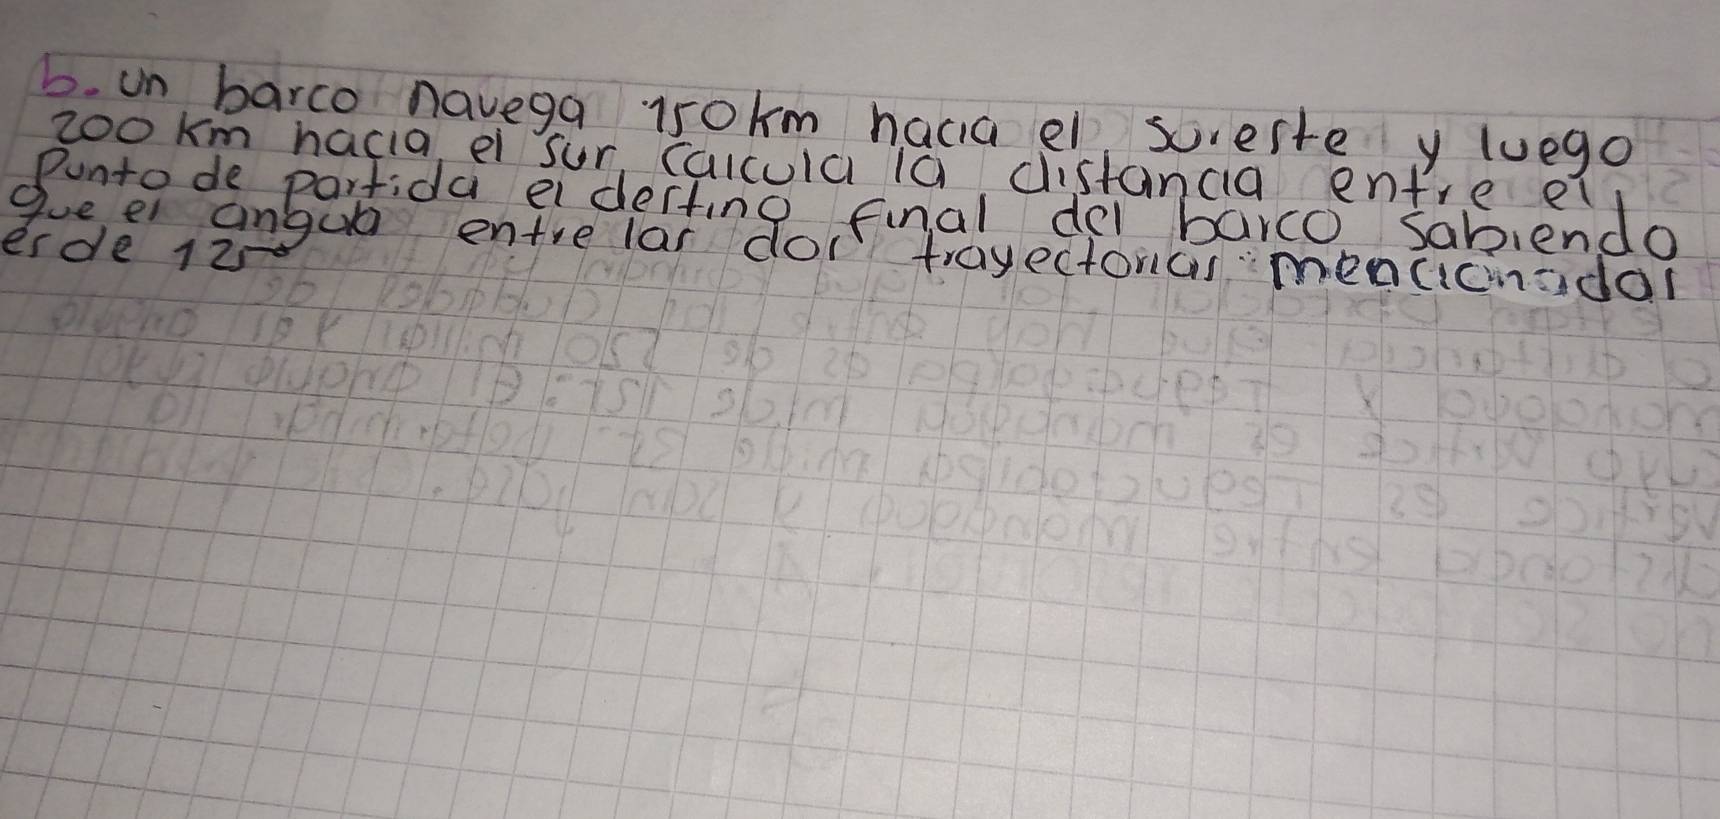 b. un barco navega 150km hacia el sureste y luego
200 km hacia el sur calcula la distancia entre el
punto de partida el destino final del barco sabiendo
que el angulo entre las dos trayectorias mencionadas
es de 125°